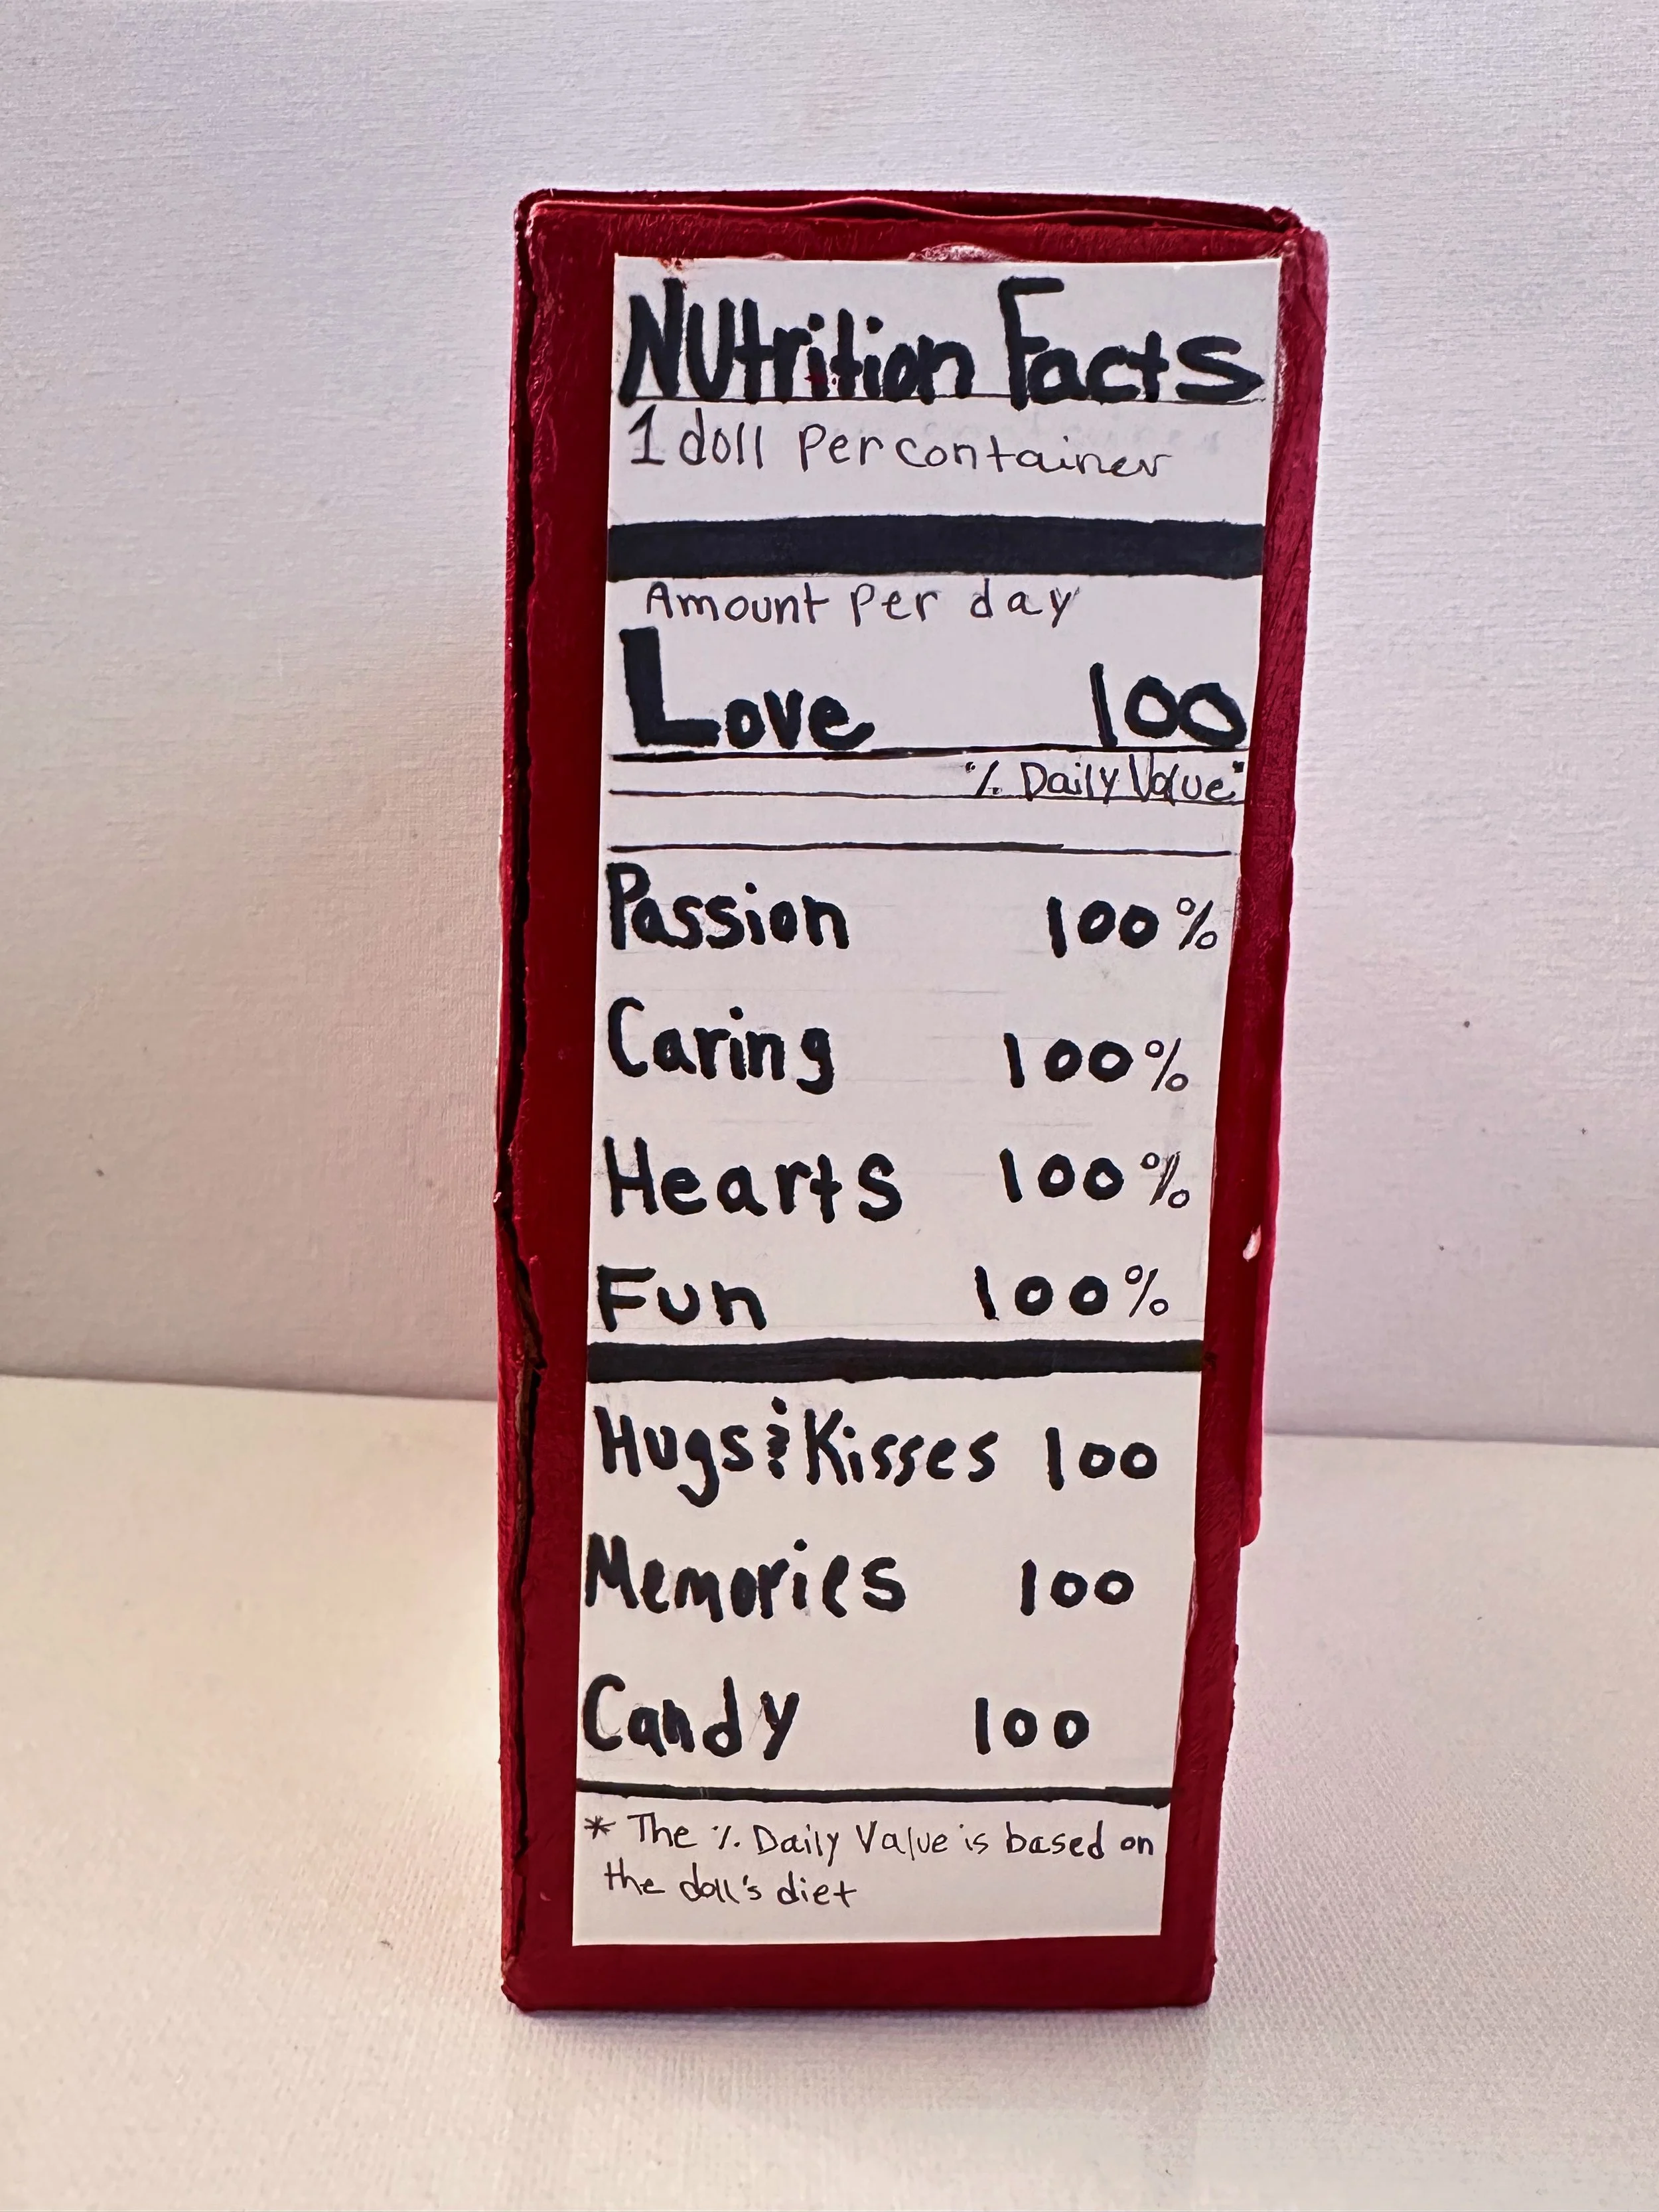 Nutrition Facts
1 doll per container
Amount per day
Love 100
% Daily Value*
Passion 100%
Caring 100%
Hearts 100%
Fun 100%
Hugs & Kisses 100
Memories 100
Candy 100
* The % Daily Value is based on
the doll's diet